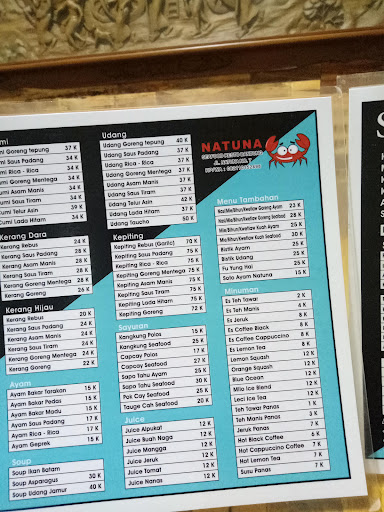 mi
umi Goreng tepung 37 K
umi Saus Padang 34 K
umi Rica - Rica 34 K
umi Goreng Mentega 34 K
umi Asam Manis 34 K
umi Saus Tiram 34 K
umi Telur Asin 39 K
umi Lada Hitam 34 K
Kerang Dara
Kerang Rebus 24 K
Kerang Saus Padang 28 K
Kerang Asam Manis 28 K
Kerang Saus Tiram 28 K
Kerang Goreng Mentega 28 K
Kerang Goreng 26 K
Kerang Hijau
Kerang Rebus 20 K
Kerang Saus Padang 24 K
Kerang Asam Manis 24 K
Kerang Saus Tiram 24 K
Kerang Goreng Mentega 24 K
Kerang Goreng 22 K
Ayam
Ayam Bakar Tarakan 15 K
Ayam Bakar Pedas 15 K
Ayam Bakar Madu 15 K
Ayam Saus Padang 17 K
Ayam Rica - Rica 17 K
Ayam Geprek 15 K
Soup
Soup Ikan Batam
Soup Asparagus 30 K
Soup Udang Jamur 40 K
Udang
Udang Goreng tepung 40 K
Udang Saus Padang 37 K
Udang Rica - Rica 37 K
Udang Goreng Mentega 37 K
Udang Asam Manis 37 K
Udang Saus Tiram 37 K
Udang Telur Asin 42 K
Udang Lada Hitam 37 K
Udang Taucho 50 K
Kepiting
Kepiting Rebus (Garlic) 70 K
Kepiting Saus Padang 75 K
Kepiting Rica - Rica 75 K
Kepiting Goreng Mentega 75 K
Kepiting Asam Manis 75 K
Kepiting Saus Tiram 75 K
Kepiting Lada Hitam 75 K
Kepiting Goreng 72 K
Sayuran
Kangkung Polos 15 K
Kangkung Seafood 25 K
Capcay Polos 17 K
Capcay Seafood 27 K
Sapo Tahu Ayam 25 K
Sapo Tahu Seafood 30 K
Pok Cay Seafood 25 K
Tauge Cah Seafood 20 K
Juice
Juice Alpukat 12 K
Juice Buah Naga 12 K
Juice Mangga 12 K
Juice Jeruk 12 K
Juice Tomat 12 K
Juice Nanas 12 K
NATUNA
Menu Tambahan
Nasi/Mie/Bihun/Kwetiaw Goreng Ayam 23 K
Nasi/Mie/Bihun/Kwetiaw Goreng Seafood 28 K
Mie/Bihun/Kwetiaw Kuah Ayam 23 K
Mie/Bihun/Kwetiaw Kuah Seafood 28 K
Bistik Ayam 25 K
Bistik Udang 35 K
Fu Yung Hai 25 K
Salo Ayam Natuna 15 K
Minuman
Es Teh Tawar 2 K
Es Teh Manis 4 K
Es Jeruk 8 K
Es Coffee Black 8 K
Es Cappuccino 8 K
Es Lemon Tea 8 K
Lemon Squash 12 K
Orange Squash 12 K
Blue Ocean 12 K
Milo Ice Blend 12 K
Leci Ice Tea 12 K
Teh Tawar Panas 1 K
Teh Manis Panas 3 K
Jeruk Panas 7 K
Hot Black Coffee 6 K
Hot Cappucino Coffee 7 K
Hot Lemon Tea 7 K
Susu Panas 7 K
S